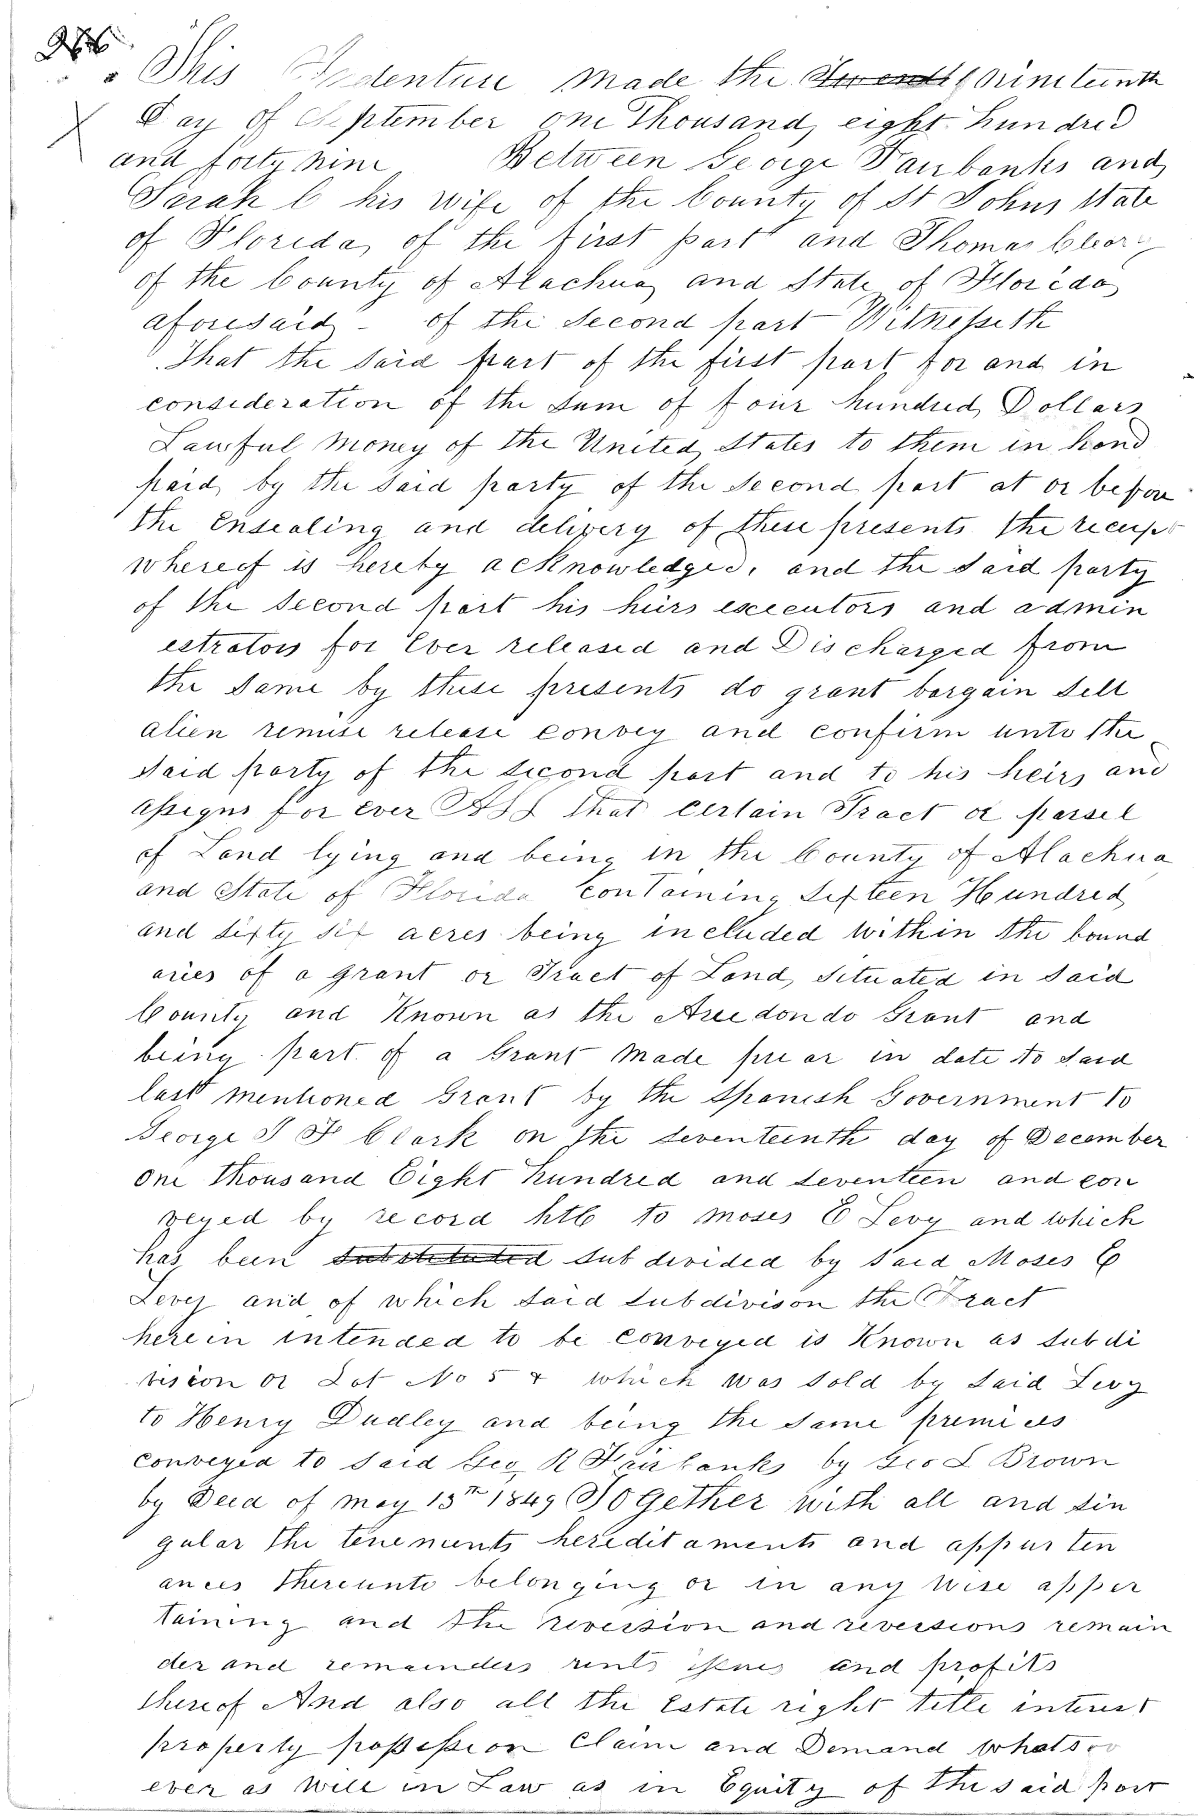 This Indenture made the Twenti nineteenth
Day of September one Thousand, eight hundred
and forty nine Between George Fairbanks and
Sarah C his wife of the County of St Johns state
of Florida, of the first part and Thomas Clear
of the County of Alachua and State of Florida
aforesaid - of the second part Witnesseth
That the said part of the first part for and in
consideration of the sum of four hundred Dollars
Lawful money of the United States to them in hand
paid by the said party of the second part at or before
the Ensealing and delivery of these presents the receipt
whereof is hereby acknowledged, and the said party
of the second part his heirs executors and admin
estrators for Ever released and Discharged from
the same by these presents do grant bargain sell
alien remise release convey and confirm unto the
said party of the second part and to his heirs and
assigns for ever All that certain Tract or parsel
of Land lying and being in the County of Alachua
and State of Florida containing Sixteen Hundred
and sixty six acres being included within the bound
aries of a grant or Tract of Land, situated in said
County and Known as the Arredondo Grant and
being part of a Grant made prior in date to said
last mentioned Grant by the Spanish Government to
George J F Clark on the seventeenth day of December
one thousand Eight hundred and seventeen and con
veyed by record to Moses E Levy and which
has been substituted sub divided by said Moses E
Levy and of which said subdivison the Tract
herein intended to be conveyed is Known as subdi
vision or Lot No 5 & which was sold by said Levy
to Henry Dudley and being the same premices
conveyed to said Geo R Fairbanks by Geo L Brown
by Deed of may 13th 1849 Together with all and sin
gular the tenements hereditaments and appurten
ances thereunto belonging or in any wise apper
taining and the reversion and reversions remain
der and remainders rents issues and profits
thereof And also all the Estate right title interest
property possession Claim and Demand whatso
ever as well in Law as in Equity of the said part